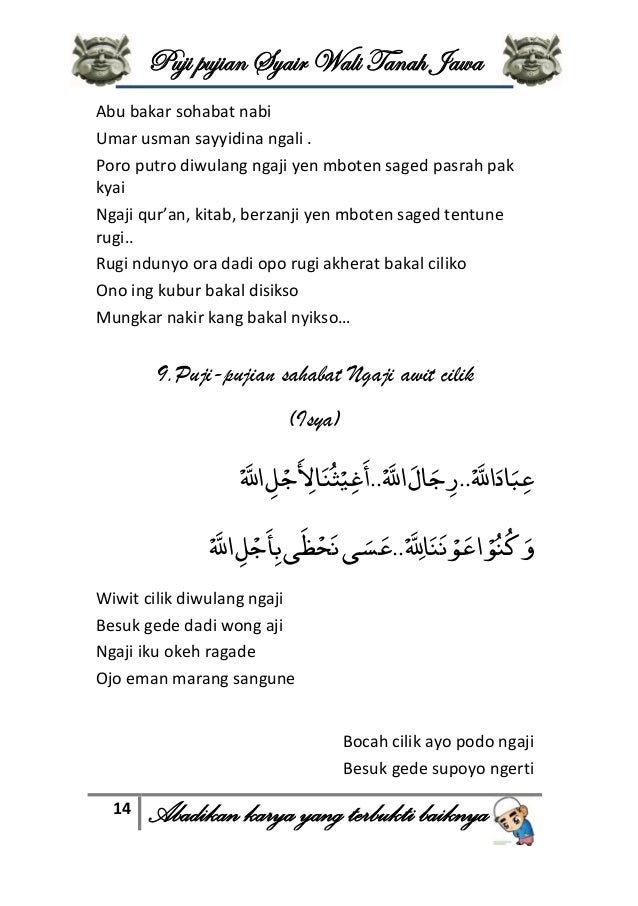 Puji pujian Syair Wali Tanah Jawa
Abu bakar sohabat nabi
Umar usman sayyidina ngali .
Poro putro diwulang ngaji yen mboten saged pasrah pak
kyai
Ngaji qur’an, kitab, berzanji yen mboten saged tentune
rugi..
Rugi ndunyo ora dadi opo rugi akherat bakal ciliko
Ono ing kubur bakal disikso
Mungkar nakir kang bakal nyikso…
9.Puji-pujian sahabat Ngaji awit cilik
(Isya)
عِبَادَاللهِ..رِجَالَ اللهِ..أَغِيْثُنَالِأَجْلِ اللهِ
وَكُنُوْاعَوْنَنَالِلّهِ..عَسَى نَحْظَى بِأَجْلِ اللهِ
Wiwit cilik diwulang ngaji
Besuk gede dadi wong aji
Ngaji iku okeh ragade
Ojo eman marang sangune
Bocah cilik ayo podo ngaji
Besuk gede supoyo ngerti
14 Abadikan karya yang terbukti baiknya